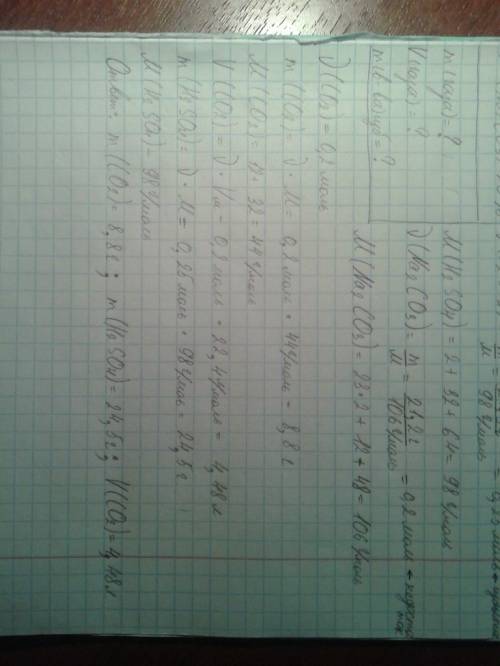 = 98 г/моль
m(газа) = ?
V(газа) = ?
m в = ?
M(H2SO4) = 2 + 32 + 64 = 98 г/моль
ν(Na2CO3) = m/M = 21,2г/106г/моль = 0,2 моль -
M(Na2CO3) = 23·2 + 12 + 48 = 106 г/моль
ν(CO2) = 0,2 моль
m(CO2) = ν · M = 0,2 моль · 44г/моль = 8,8 г
M(CO2) = 12 + 32 = 44 г/моль
V(CO2) = ν · Vm = 0,2 моль · 22,4г/моль = 4,48 л
m(H2SO4) = ν · M = 0,25 моль · 98г/моль = 24,5 г
M(H2SO4) = 98 г/моль
Ответ: m(CO2) = 8,8 г; m(H2SO4) = 24,5 г; V(CO2) = 4,48 л